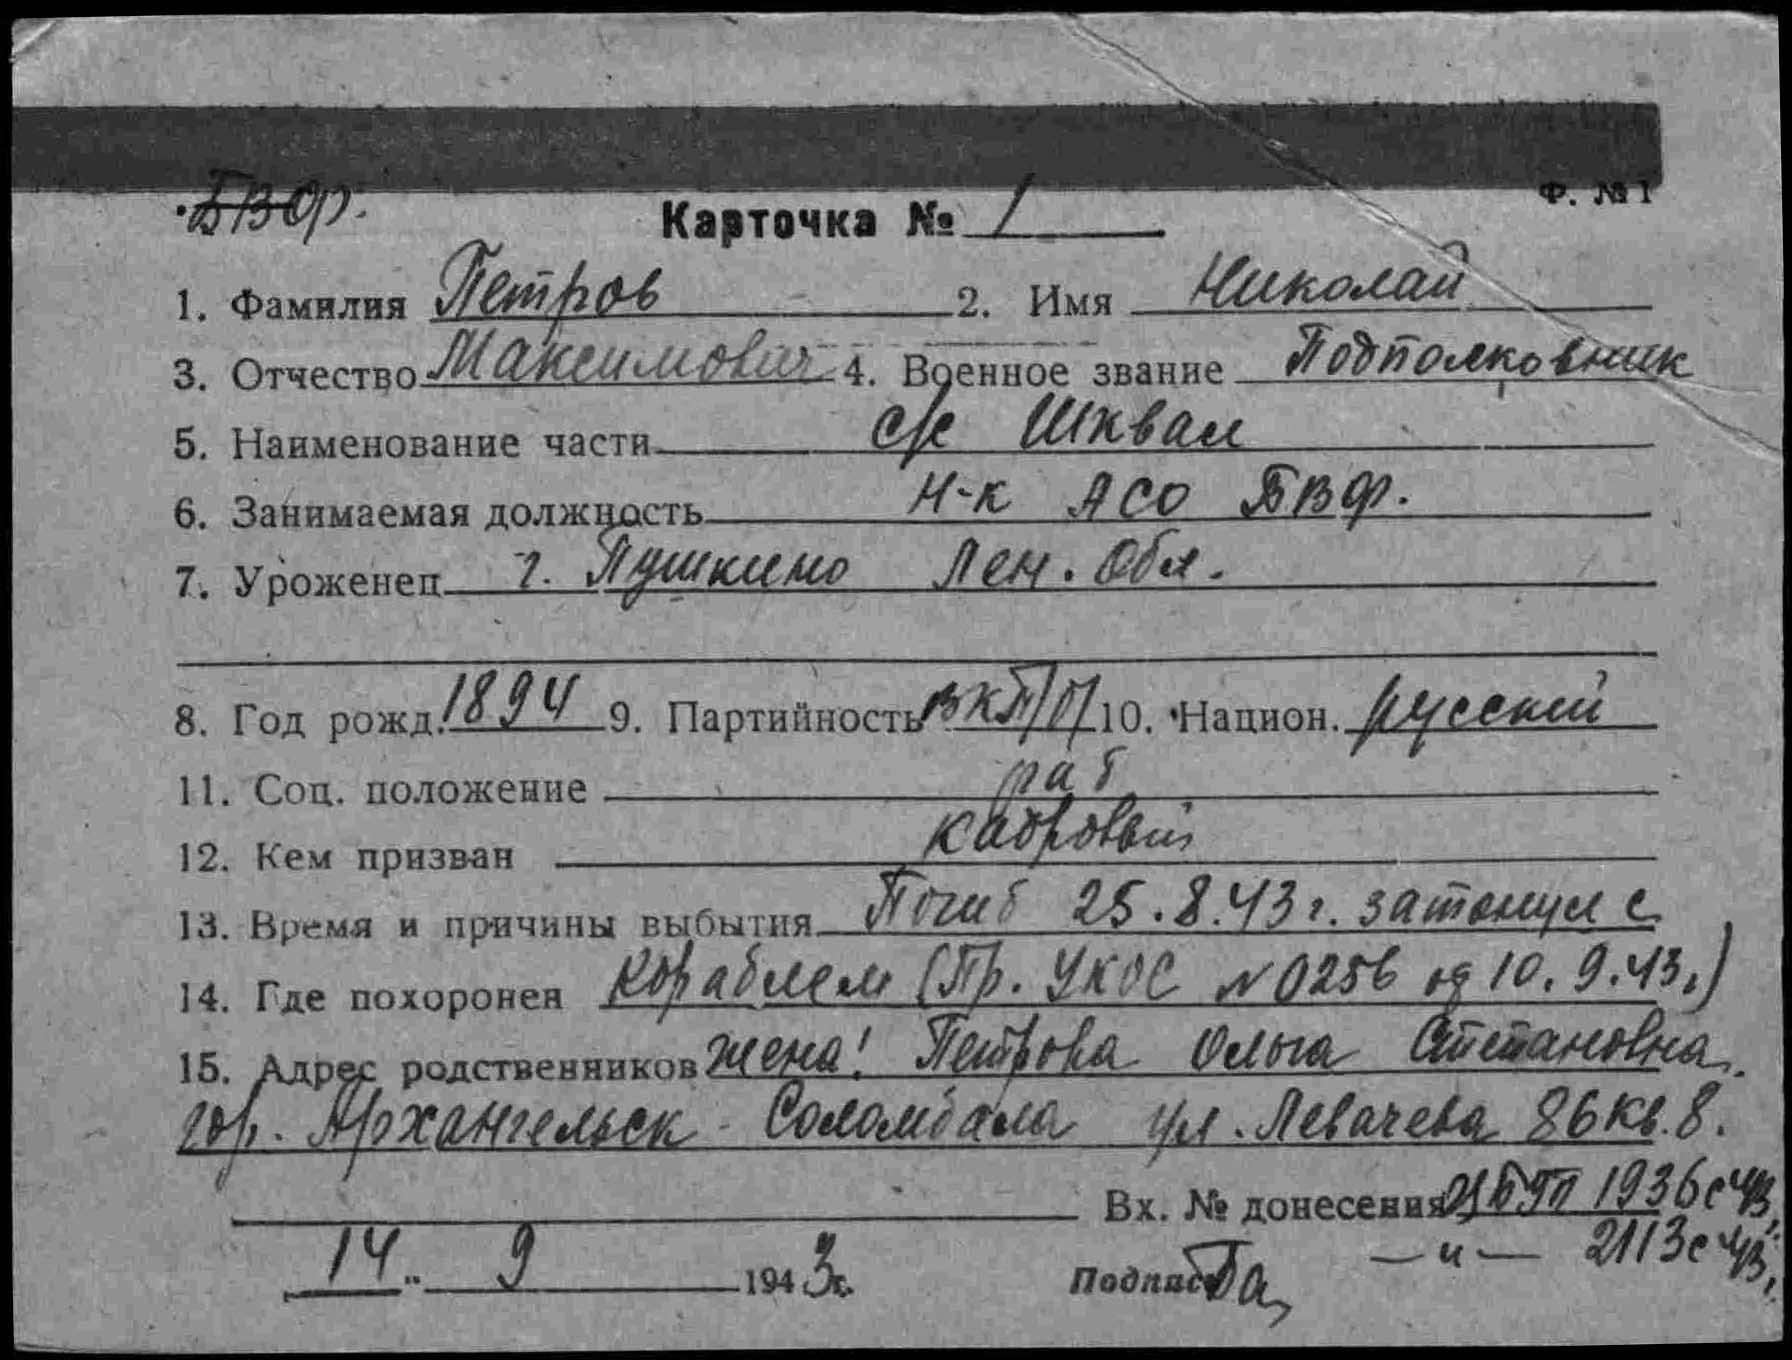 БВФ.
Ф. № 1
Карточка № 1
1. Фамилия Петров 2. Имя Николай
3. Отчество Максимович 4. Военное звание Подполковник
5. Наименование части с/с Шквал
6. Занимаемая должность Н-к АСО БВФ.
7. Уроженец г. Пушкино Лен. Обл.
8. Год рожд. 1894 9. Партийность ВКП/б/ 10. Национ. русский
11. Соц. положение раб
12. Кем призван кадровый
13. Время и причины выбытия Погиб 25.8.43 г. затонул с
14. Где похоронен кораблем (Пр. УКОС № 0256 от 10.9.43г.)
15. Адрес родственников жена: Петрова Ольга Степановна.
гор. Архангельск - Соломбала ул. Левачева 86 кв. 8.
Вх. № донесения 1936с 43
14 " 9 1943г. Подпись — " — 2113с 43г.